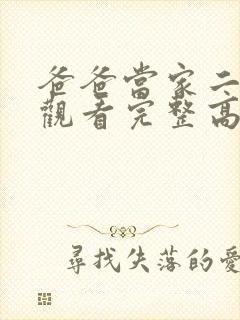 爸爸當家二
觀看完整高
尋找失落的愛